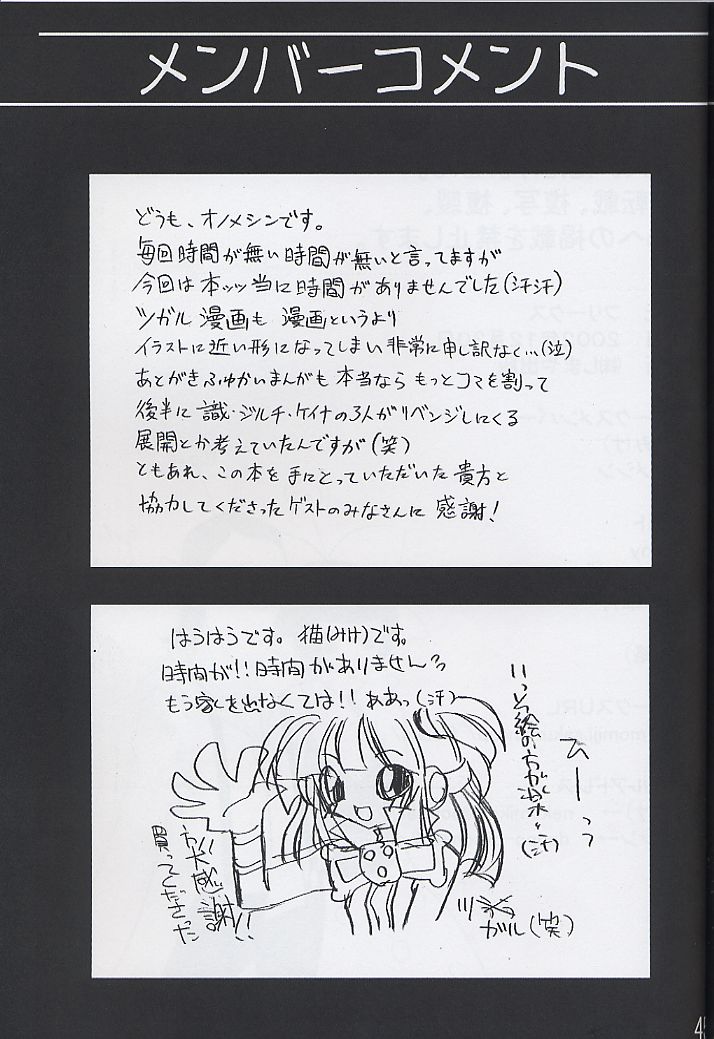 メンバーコメント
どうも、オノメシンです。
毎回時間が無い時間が無いと言ってますが
今回は本ッッ当に時間がありませんでした(汗汗)
ツガル漫画も 漫画というより
イラストに近い形になってしまい非常に申し訳なく…(泣)
あとがきふゆかいまんがも本当なら もっとコマを割って
後半に 識・ジルチ・ケイナの3人がリベンジしにくる
展開とか考えていたんですが(笑)
ともあれ、この本を手にとっていただいた貴方と
協力してくださったゲストのみなさんに 感謝!
はうはうです。猫(みけ)です。
時間が!!時間がありませんっ
もう家を出なくては!!ああっ(汗)
ひーっ
(汗)
買ってくださった
方大感謝!!
ガル(笑)
4